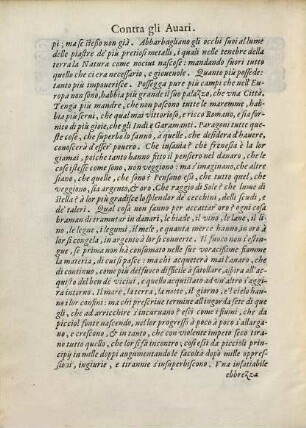 Contra gli Auari.
pi; ma se stesso non già. Abbarbagliano gli occhi suoi al lume
delle piastre de' più pretiosi metalli, i quali nelle tenebre della
terra la Natura come nociui nascose: mandando fuori tutto
quello che ci era necessario, e gioueuole. Quanto più possede:
tanto più impouerisce. Possegga pure più campi che nell' Eu
ropa non sono, habbia più grande il suo palazzo, che vna Città.
Tenga più mandre, che non pascono tutte le maremme, habbia
più serui, che qual mai vittorioso, e ricco Romano, e sia forni-
to di più gioie, che gl' Indi e Garamanti. Paragoni tutte que-
ste cose, che superbo lo fanno, à quelle, che desidera d'hauere,
conoscerà d'esser pouero. Che insania? che frenesia è la lor
giamai, poiche tanto hanno fitto il pensiero nel danaro, che le
cose istesse come sono, non veggiono: ma s'imaginano, che altre
siano, che quelle, che sono? Pensano essi, che tutto quel, che
veggiono, sia argento, & oro. Che raggio di Sole? che lume di
stella? à lor più gradisce lo splendor de' cecchini, dell' scudi, e
de' taleri. Qual cosa non fanno per accattar oro? ogni cosa
braman di tramutar in danari, le biade, il vino, le lane, il li-
no, le legne, i legumi, il mele, e quanta merce hanno in oro à
lor si congela, in argento à lor si conuerte. Il fuoco non s'estin-
gue, se prima non hà consumato nelle sue voracissime fiamme
la materia, di cui si pasce: ma chi acqueterà mai l'auaro, che
di continuo, come più del fuoco difficile à satollare, aspira all' ac-
quisto del ben de' vicini, e quello acquistato ad vn'altro s'aggi-
ra intorno. Il mare, la terra, la notte, il giorno, e'l cielo hanno
i lor confini: ma chi prescriue termine all'ingorda sete di que
gli, che ad arricchire s'incuruano? essi come i fiumi, che da
piccioli fonti nascendo, nel lor progressi à poco à poco s'allarga-
no, e crescono, & in tanto, che con violente impeto seco tirano
tutto quello, che lor si fa incontro, così essi da piccioli prin-
cipij in mille doppi augumentando le facoltà dopò mille oppres-
sioni, ingiurie, e tirannie s'insuperbiscono. Vna insatiabile
ebbrezza